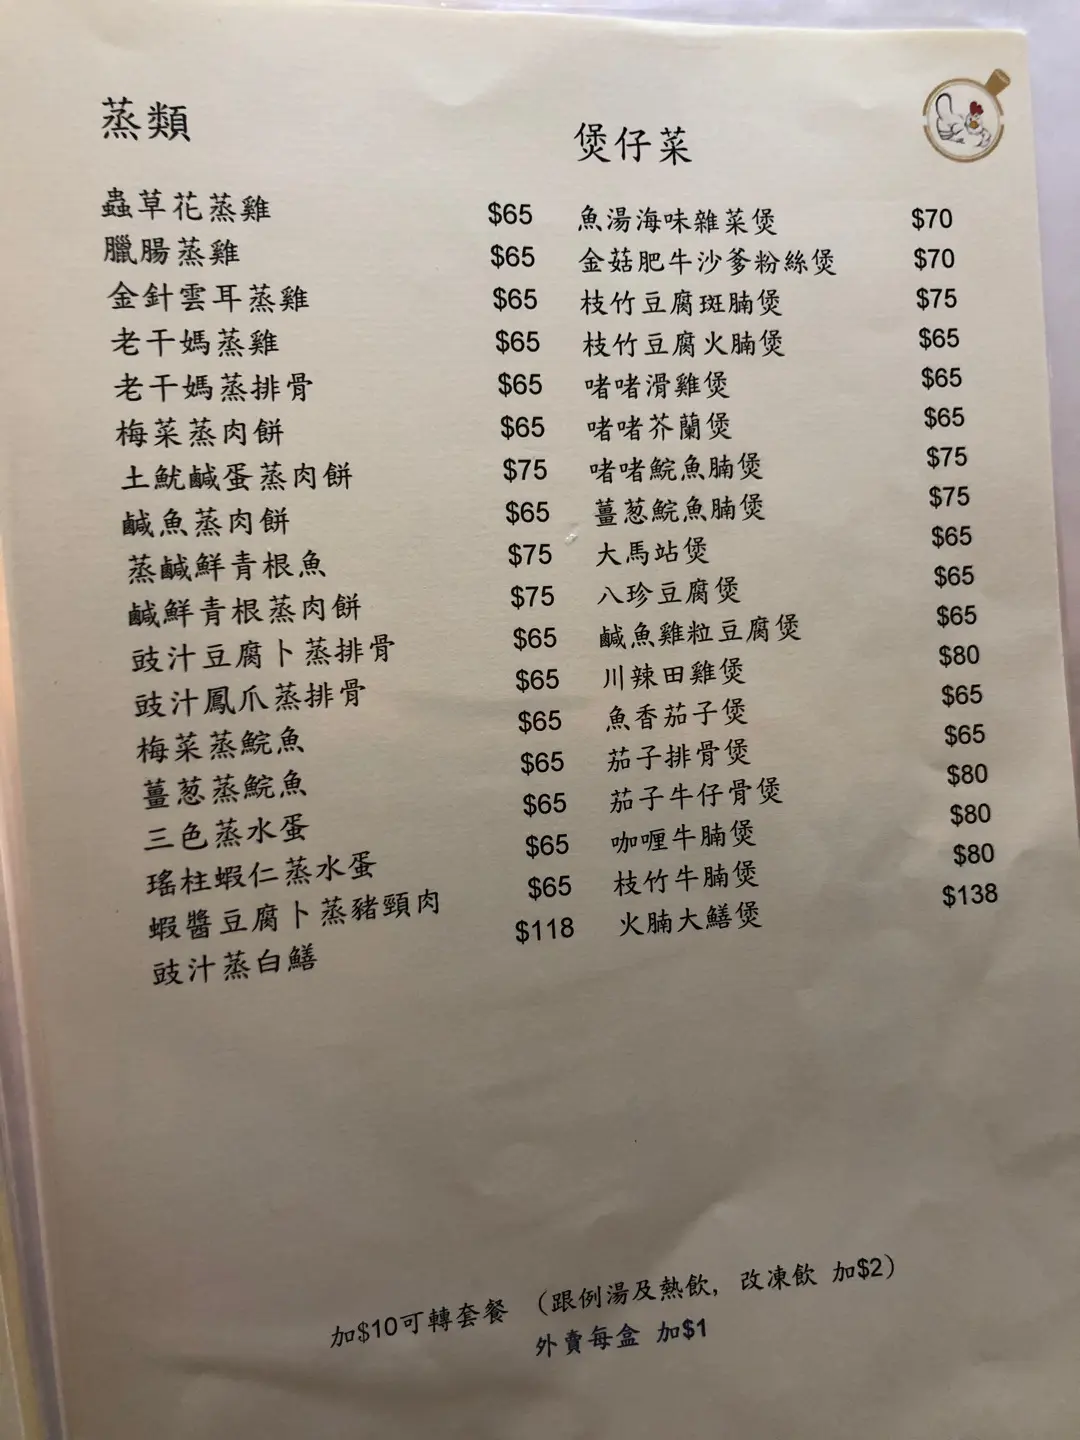 蒸類
蟲草花蒸雞 $65
臘腸蒸雞 $65
金針雲耳蒸雞 $65
老干媽蒸雞 $65
老干媽蒸排骨 $65
梅菜蒸肉餅 $65
土魷鹹蛋蒸肉餅 $75
鹹魚蒸肉餅 $65
蒸鹹鮮青根魚 $75
鹹鮮青根蒸肉餅 $75
豉汁豆腐卜蒸排骨 $65
豉汁鳳爪蒸排骨 $65
梅菜蒸鯇魚 $65
薑葱蒸鯇魚 $65
三色蒸水蛋 $65
瑤柱蝦仁蒸水蛋 $65
蝦醬豆腐卜蒸豬頸肉 $65
豉汁蒸白鱔 $118
煲仔菜
魚湯海味雜菜煲 $70
金菇肥牛沙爹粉絲煲 $70
枝竹豆腐斑腩煲 $75
枝竹豆腐火腩煲 $65
啫啫滑雞煲 $65
啫啫芥蘭煲 $65
啫啫鯇魚腩煲 $75
薑葱鯇魚腩煲 $75
大馬站煲 $65
八珍豆腐煲 $65
鹹魚雞粒豆腐煲 $65
川辣田雞煲 $80
魚香茄子煲 $65
茄子排骨煲 $65
茄子牛仔骨煲 $80
咖喱牛腩煲 $80
枝竹牛腩煲 $80
火腩大鱔煲 $138
加$10可轉套餐 （跟例湯及熱飲，改凍飲 加$2）
外賣每盒 加$1